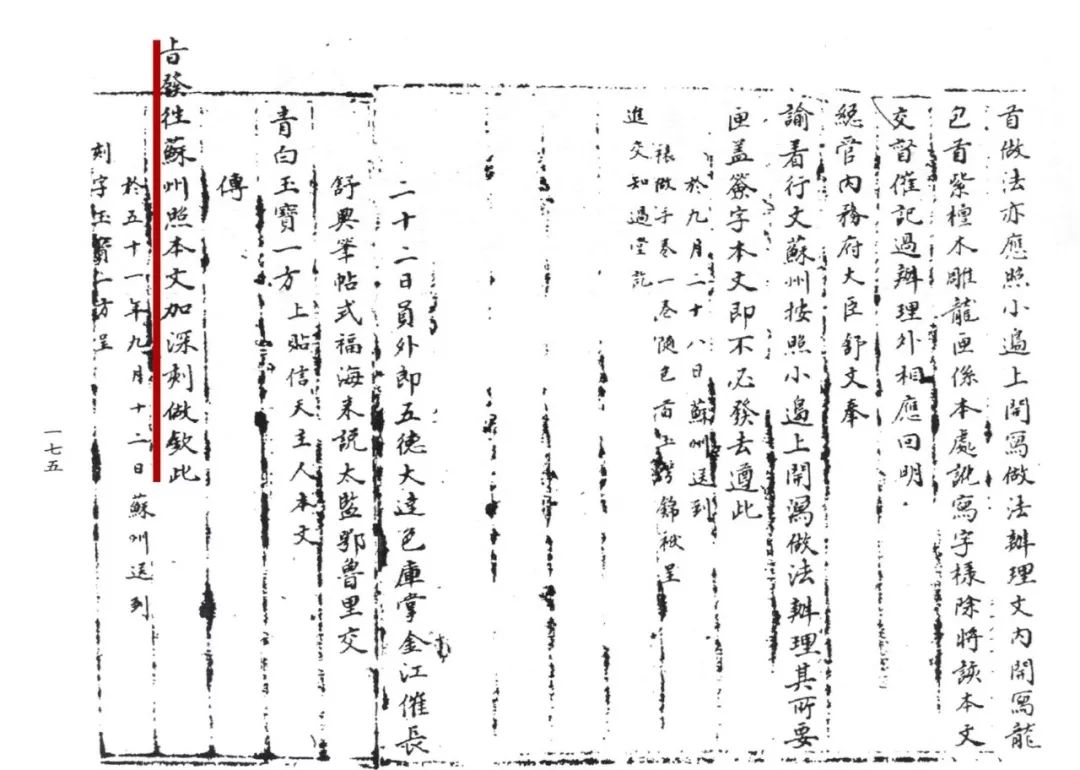 首做法亦應照小過上開寫做法辦理文內開寫龍
包首紫檀木雕龍匣係本處訛寫字樣除將該本文
交督催記過辦理外相應回明
總管內務府大臣舒文奉
諭着行文蘇州按照小過上開寫做法辦理其所要
匣盖簽字本文即不必發去遵此
於九月二十八日蘇州送到
裱做手卷一卷隨包首玉錦袱呈
進交知過堂訖
二十二日員外郎五德大達色庫掌金江催長
舒興筆帖式福海來說太監鄂魯里交
青白玉寶一方上貼信天主人本文
傳
旨發往蘇州照本文加深刻做欽此
於五十一年九月十二日蘇州送到
刻字玉寶一方呈
一七五